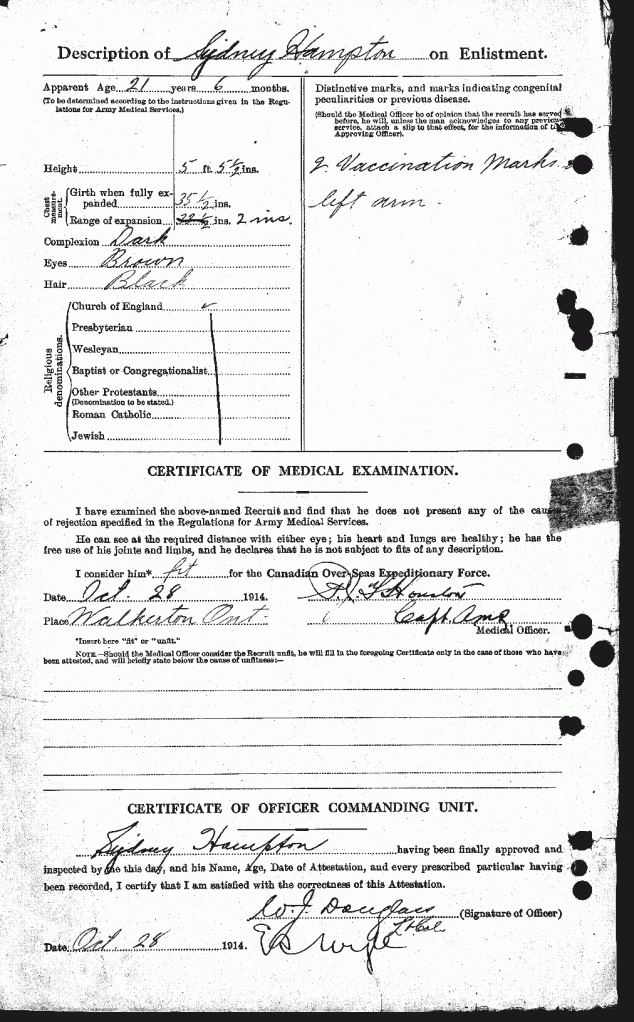 Description of Sydney Hampton on Enlistment.
Apparent Age 21 years 6 months.
(To be determined according to the instructions given in the Regulations for Army Medical Services.)
Height 5 ft. 5½ ins.
Chest measurement.
Girth when fully expanded 35½ ins.
Range of expansion ins. 2 ins.
Complexion Dark
Eyes Brown
Hair Black
Religious denominations.
Church of England ✓
Presbyterian
Wesleyan
Baptist or Congregationalist
Other Protestants
(Denomination to be stated.)
Roman Catholic
Jewish
Distinctive marks, and marks indicating congenital
peculiarities or previous disease.
(Should the Medical Officer be of opinion that the recruit has served
before, he will, unless the man acknowledges to any previous
service, attach a slip to that effect, for the information of the
Approving Officer).
2 Vaccination Marks
left arm.
CERTIFICATE OF MEDICAL EXAMINATION.
I have examined the above-named Recruit and find that he does not present any of the causes
of rejection specified in the Regulations for Army Medical Services.
He can see at the required distance with either eye; his heart and lungs are healthy; he has the
free use of his joints and limbs, and he declares that he is not subject to fits of any description.
I consider him* fit for the Canadian Over-Seas Expeditionary Force.
Date Oct. 28 1914. Houston
Place Walkerton Ont. Capt.
Medical Officer.
*Insert here "fit" or "unfit."
NOTE.—Should the Medical Officer consider the Recruit unfit, he will fill in the foregoing Certificate only in the case of those who have
been attested, and will briefly state below the cause of unfitness:—
CERTIFICATE OF OFFICER COMMANDING UNIT.
Sydney Hampton having been finally approved and
inspected by me this day, and his Name, Age, Date of Attestation, and every prescribed particular having
been recorded, I certify that I am satisfied with the correctness of this Attestation.
W. J. Douglass (Signature of Officer)
Lt Col.
Date Oct 28 1914.